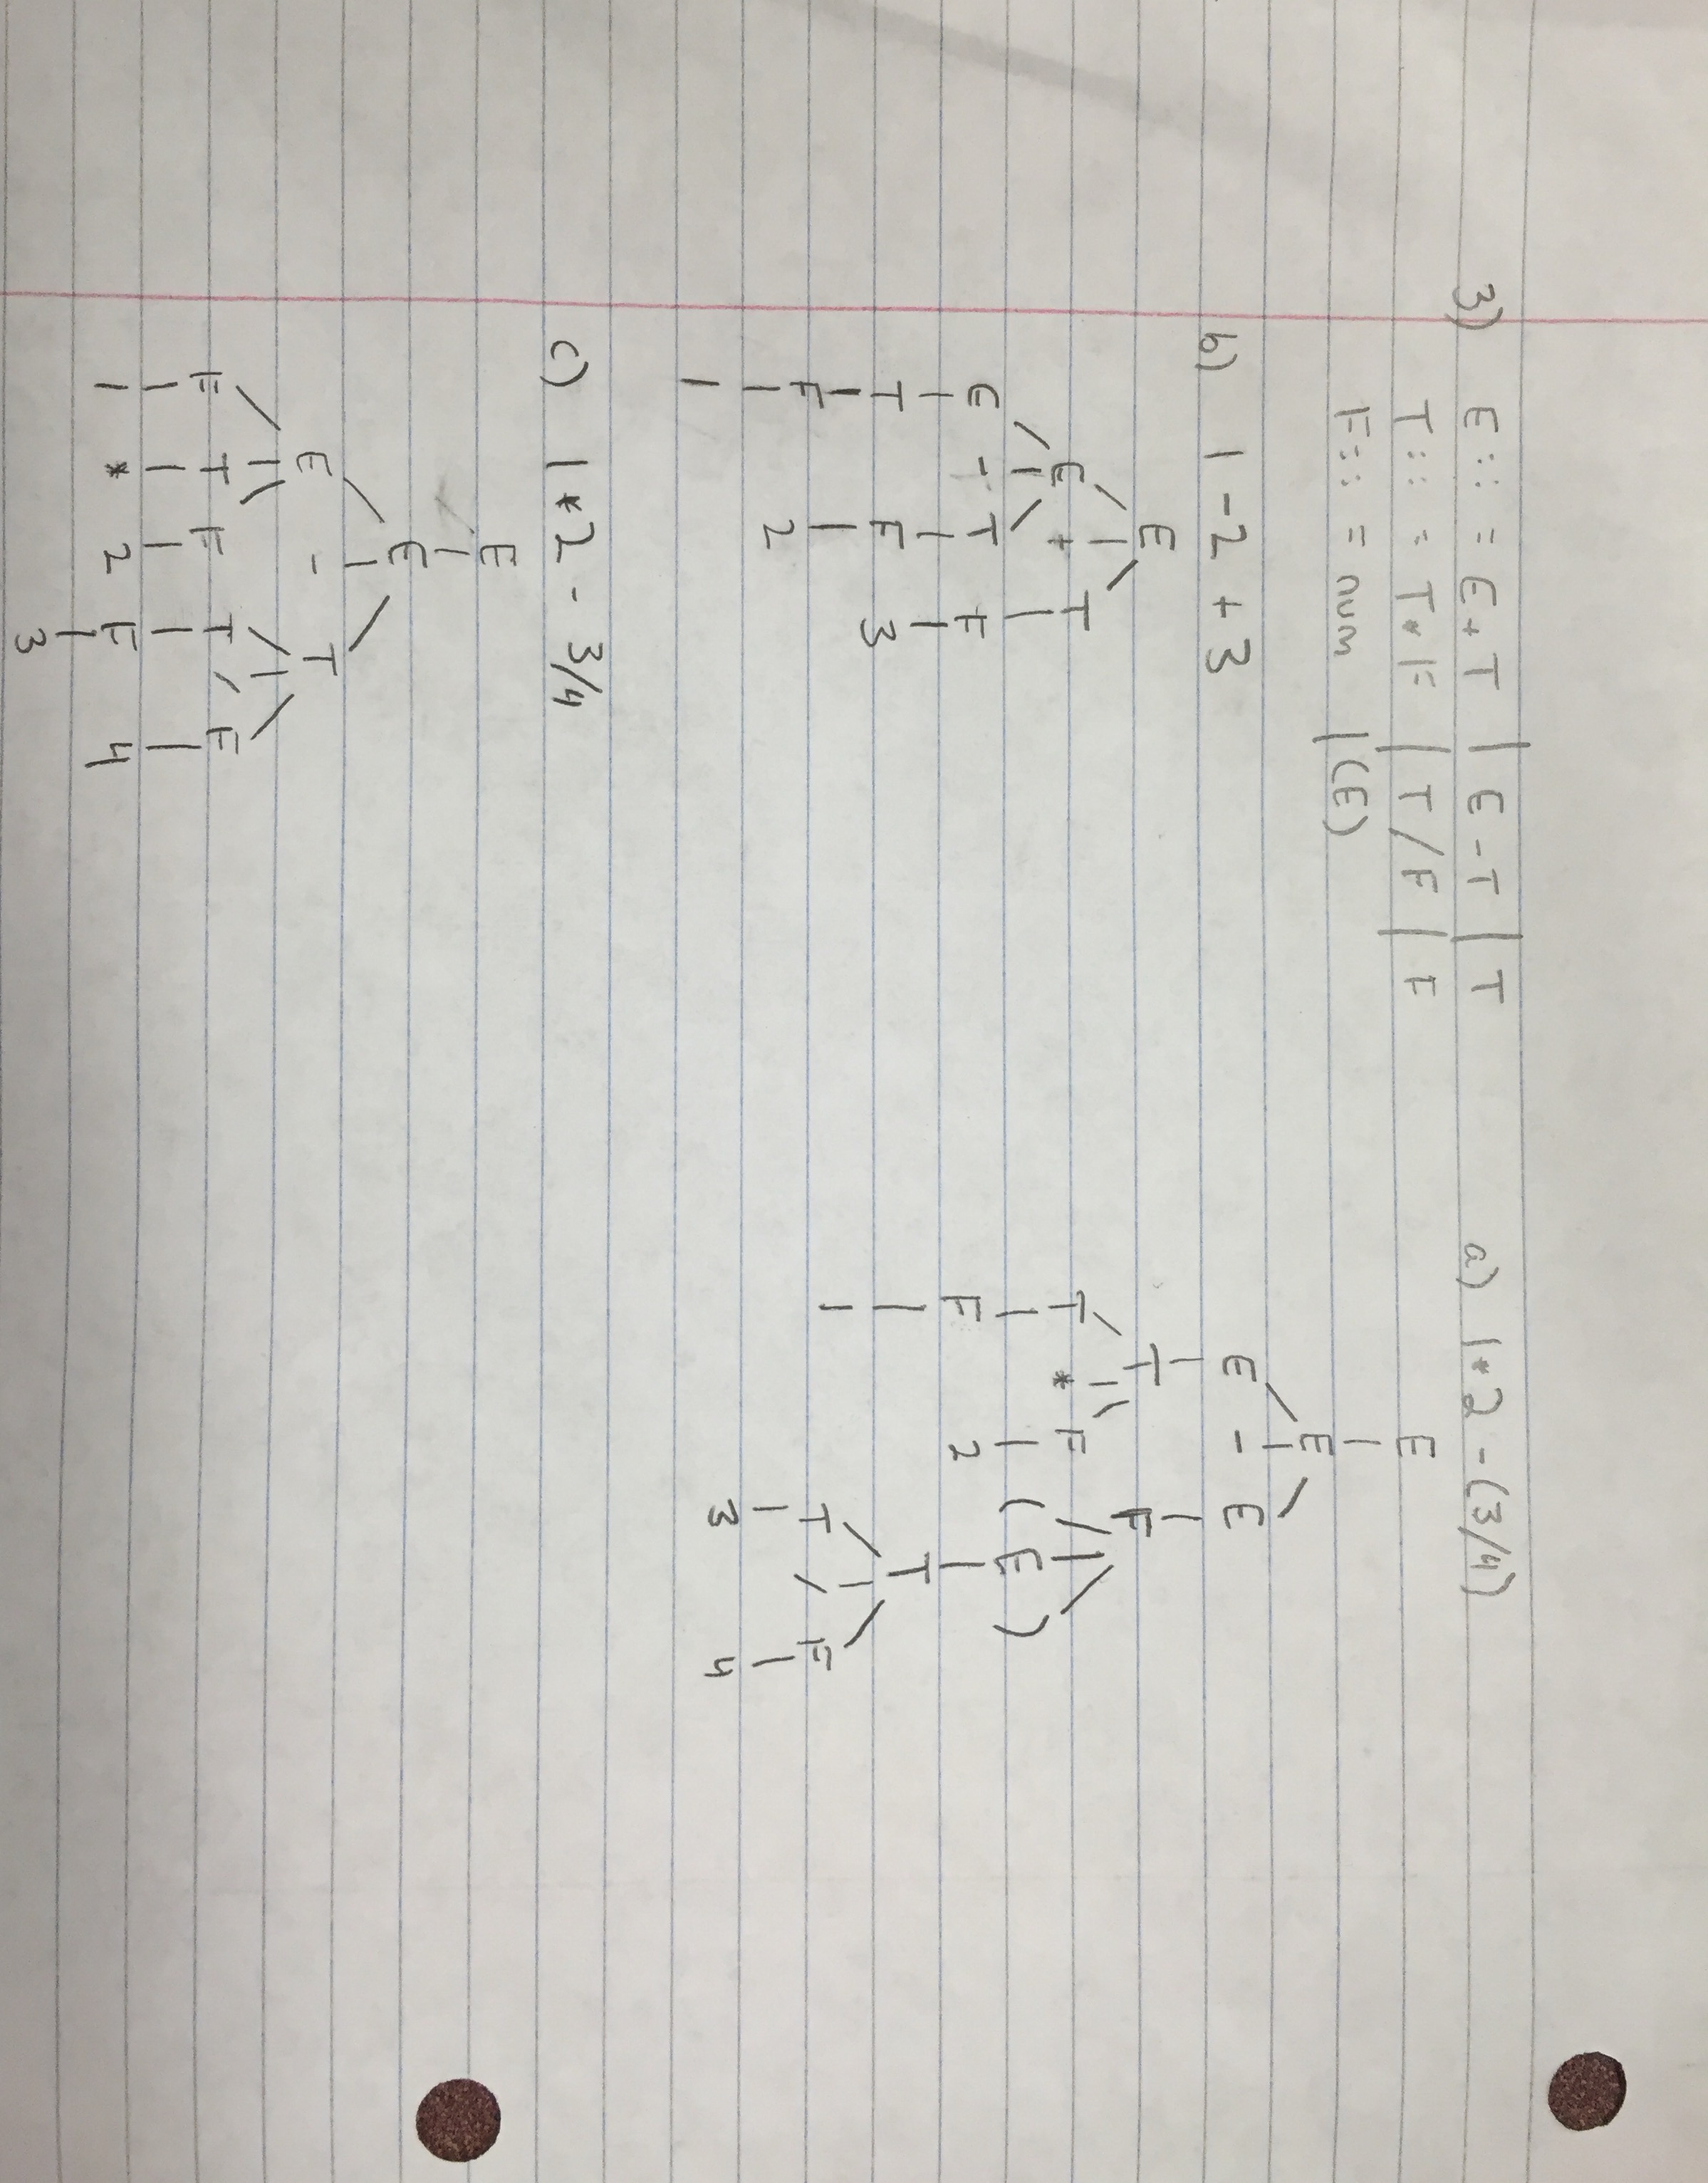 3) E ::= E + T | E - T | T
T ::= T * F | T / F | F
F ::= num | (E)
a) 1 * 2 - (3/4)
E
E
E - E
T F
T * F ( E )
F 2 T
1 T / F
3 4
b) 1 - 2 + 3
E
E + T
E - T F
T F 3
F 2
1
c) 1 * 2 - 3/4
E
E
E - T
F T F T / F
1 * 2 F 4
3